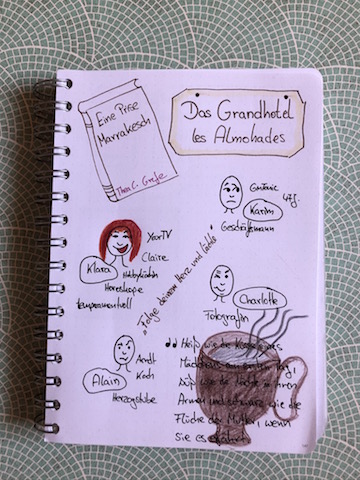 Eine Prise
Marrakesch
Das Grandhotel
les Almohades
47J.
Karim
Geschäftsmann
YourTV
Claire
Klara
Horoskope
temperamentvoll
"Folge deinem Herz und lächle"
Charlotte
Fotografin
Alain
Koch
Herzogstube
Heiß wie die Küsse eines
Mädchens am ersten Tag,
süß wie die Nächte in ihren
Armen und schwarz wie die
Flüche der Mutter, wenn
sie es erfährt